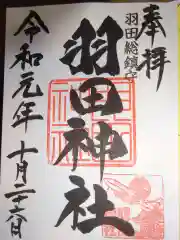 奉拝
羽田総鎮守
羽田神社
令和元年十月二十六日